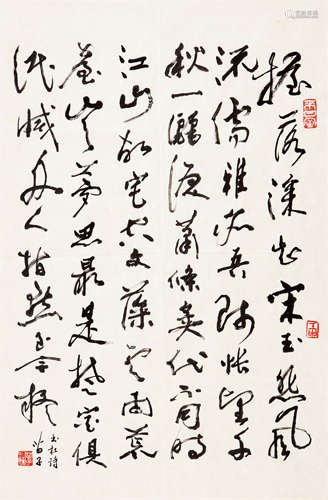 搖落深知宋玉悲風
流儒雅亦吾師悵望千
秋一灑淚蕭條異代不同時
江山故宅空文藻雲雨荒
臺豈夢思最是楚宮俱
泯滅舟人指點到今疑
書杜詩
苗子